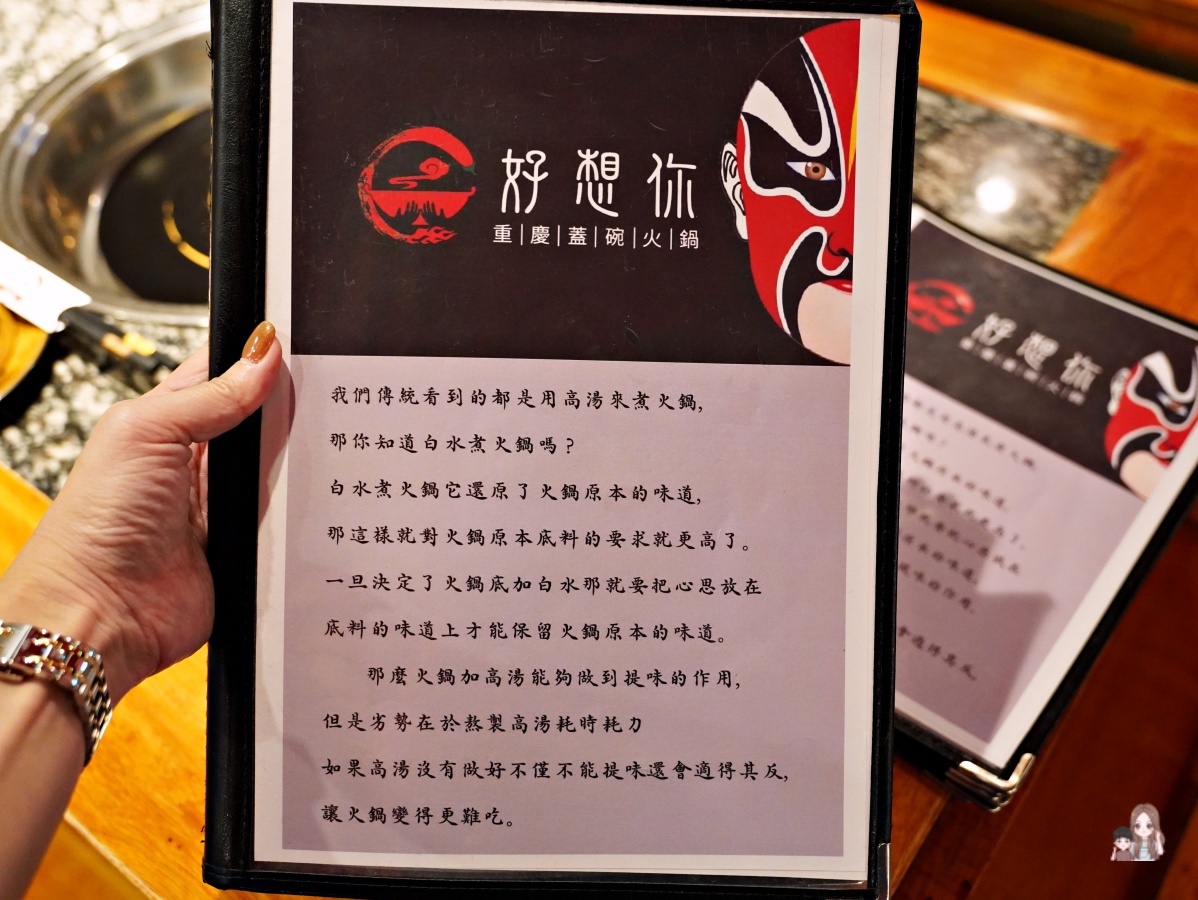 好想你
重|慶|蓋|碗|火|鍋
我們傳統看到的都是用高湯來煮火鍋,
那你知道白水煮火鍋嗎?
白水煮火鍋它還原了火鍋原本的味道,
那這樣就對火鍋原本底料的要求就更高了。
一旦決定了火鍋底加白水那就要把心思放在
底料的味道上才能保留火鍋原本的味道。
那麼火鍋加高湯能夠做到提味的作用,
但是劣勢在於熬製高湯耗時耗力
如果高湯沒有做好不僅不能提味還會適得其反,
讓火鍋變得更難吃。
好想你